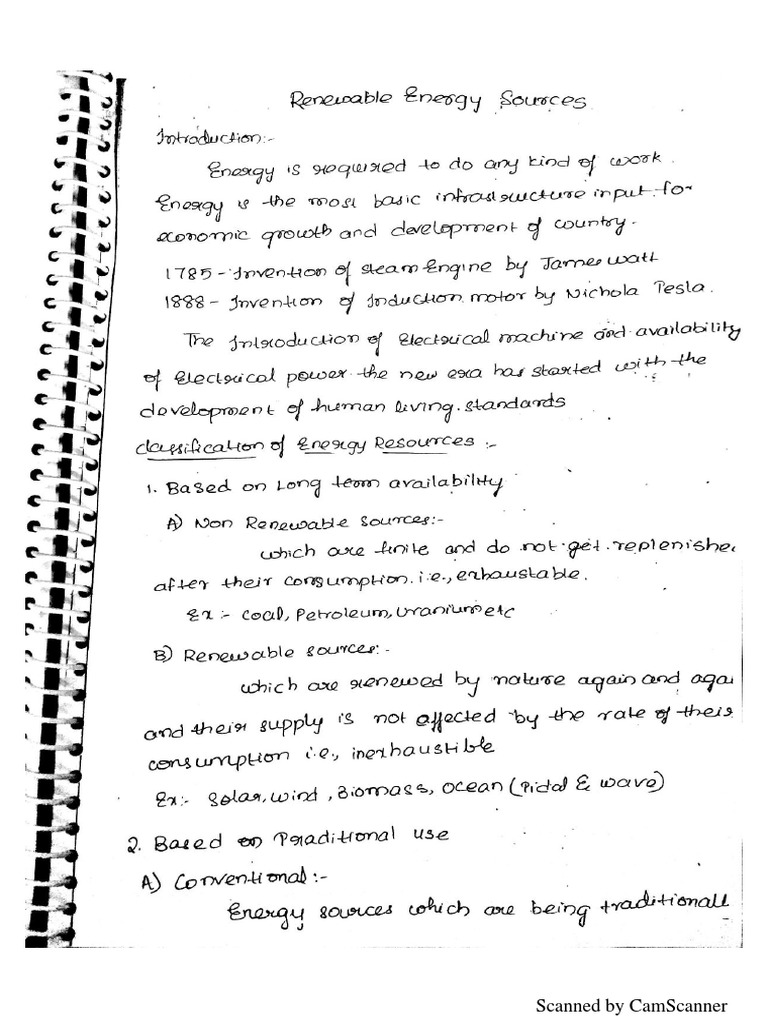 Renewable Energy Sources
Introduction:-
Energy is required to do any kind of work.
Energy is the most basic infrastructure input for
economic growth and development of country.
1785 - Invention of steam Engine by James watt
1888 - Invention of Induction motor by Nichola Tesla.
The Introduction of Electrical machine and availability
of Electrical power the new era has started with the
development of human living standards
classification of Energy Resources :-
1. Based on Long term availability
A) Non Renewable sources:-
which are finite and do not get replenishe
after their consumption i.e., exhaustable.
Ex :- coal, Petroleum, Uranium etc
B) Renewable sources:-
which are renewed by nature again and agai
and their supply is not affected by the rate of their
consumption i.e., inexhaustible
Ex:- Solar, wind, Biomass, Ocean (Tidal & wave)
2. Based on Traditional use
A) Conventional :-
Energy sources which are being traditionall
Scanned by CamScanner